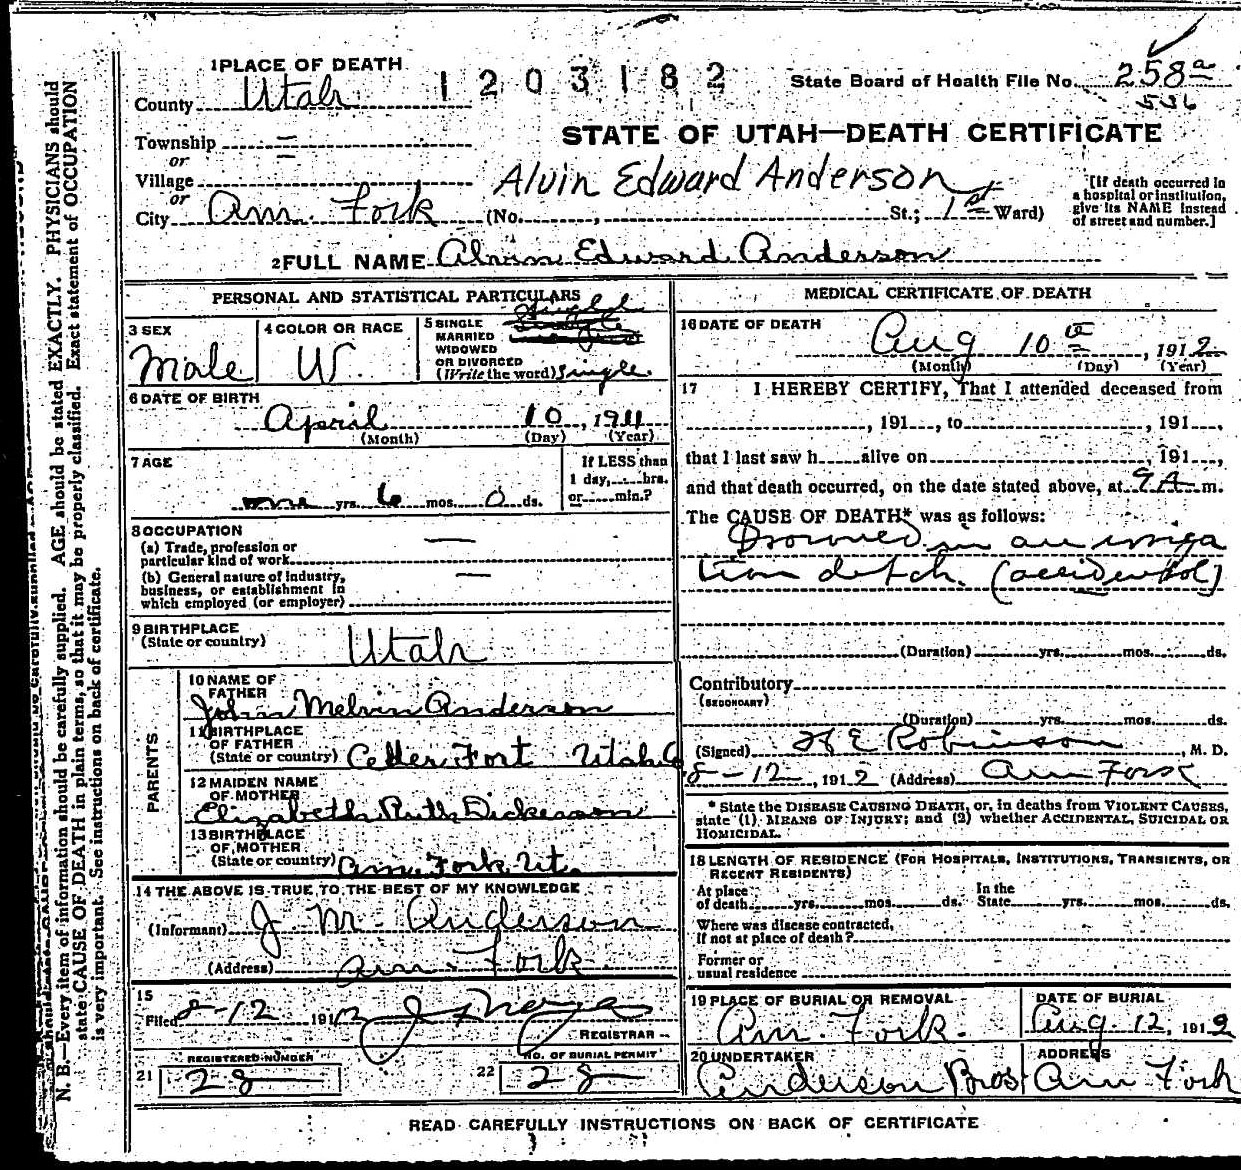 1 PLACE OF DEATH
1203182
State Board of Health File No. 258a
536
County Utah
STATE OF UTAH—DEATH CERTIFICATE
Township —
or
Village —
or
Alvin Edward Anderson
City Am. Fork (No. , St.; 1st Ward)
[If death occurred in
a hospital or institution,
give its NAME instead
of street and number.]
2 FULL NAME Alvin Edward Anderson
PERSONAL AND STATISTICAL PARTICULARS
3 SEX
Male
4 COLOR OR RACE
W.
5 SINGLE
MARRIED
WIDOWED
OR DIVORCED
(Write the word) single
Single
6 DATE OF BIRTH
April 10, 1911
(Month) (Day) (Year)
7 AGE
one yrs. 6 mos. 0 ds.
If LESS than
1 day, hrs.
or min.?
8 OCCUPATION
(a) Trade, profession or
particular kind of work —
(b) General nature of industry,
business, or establishment in
which employed (or employer) —
9 BIRTHPLACE
(State or country) Utah
PARENTS
10 NAME OF
FATHER
John Melvin Anderson
11 BIRTHPLACE
OF FATHER
(State or country) Ceder Fort Utah Co
12 MAIDEN NAME
OF MOTHER
Elizabeth Ruth Dickerson
13 BIRTHPLACE
OF MOTHER
(State or country) Am. Fork Ut.
14 THE ABOVE IS TRUE TO THE BEST OF MY KNOWLEDGE
(Informant) J M. Anderson
(Address) Am. Fork
15
Filed 8-12, 1912
REGISTRAR
REGISTERED NUMBER
21 28
NO. OF BURIAL PERMIT
22 28
MEDICAL CERTIFICATE OF DEATH
16 DATE OF DEATH
Aug 10th, 1912
(Month) (Day) (Year)
17 I HEREBY CERTIFY, That I attended deceased from
, 191 , to , 191 ,
that I last saw h alive on , 191 ,
and that death occurred, on the date stated above, at 9 A m.
The CAUSE OF DEATH* was as follows:
Drowned in an irriga
tion ditch. (accidental)
(Duration) yrs. mos. ds.
Contributory
(SECONDARY)
(Duration) yrs. mos. ds.
(Signed) H E Robinson, M. D.
8-12, 1912 (Address) Am Fork
* State the DISEASE CAUSING DEATH, or, in deaths from VIOLENT CAUSES,
state (1) MEANS OF INJURY; and (2) whether ACCIDENTAL, SUICIDAL OR
HOMICIDAL.
18 LENGTH OF RESIDENCE (FOR HOSPITALS, INSTITUTIONS, TRANSIENTS, OR
RECENT RESIDENTS)
At place
of death yrs. mos. ds.
In the
State yrs. mos. ds.
Where was disease contracted,
if not at place of death?
Former or
usual residence
19 PLACE OF BURIAL OR REMOVAL
Am. Fork.
DATE OF BURIAL
Aug. 12, 1912
20 UNDERTAKER
Anderson Bros
ADDRESS
Am Fork
READ CAREFULLY INSTRUCTIONS ON BACK OF CERTIFICATE
N. B.—Every item of information should be carefully supplied. AGE should be stated EXACTLY. PHYSICIANS should
state CAUSE OF DEATH in plain terms, so that it may be properly classified. Exact statement of OCCUPATION
is very important. See instructions on back of certificate.